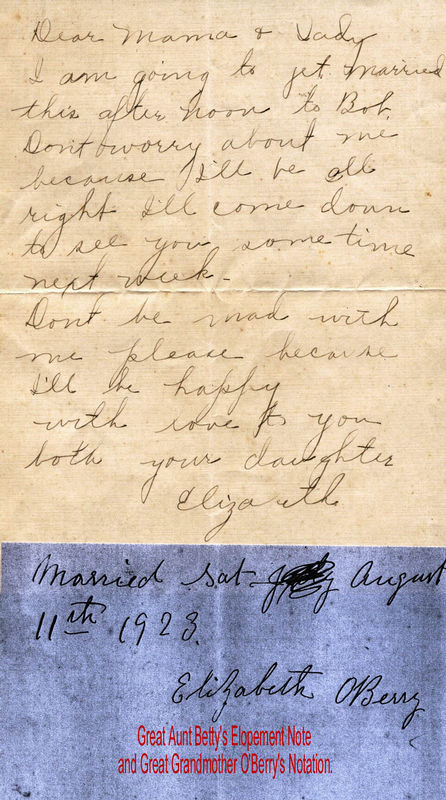 Dear Mama & Dady
I am going to get married
this after noon to Bob.
Dont worry about me
because I'll be all
right I'll come down
to see you some time
next week -
Dont be mad with
me please because
I'll be happy
with love to you
both your daughter
Elizabeth
Married Sat August
11th 1923.
Elizabeth O'Berry
Great Aunt Betty's Elopement Note
and Great Grandmother O'Berry's Notation.